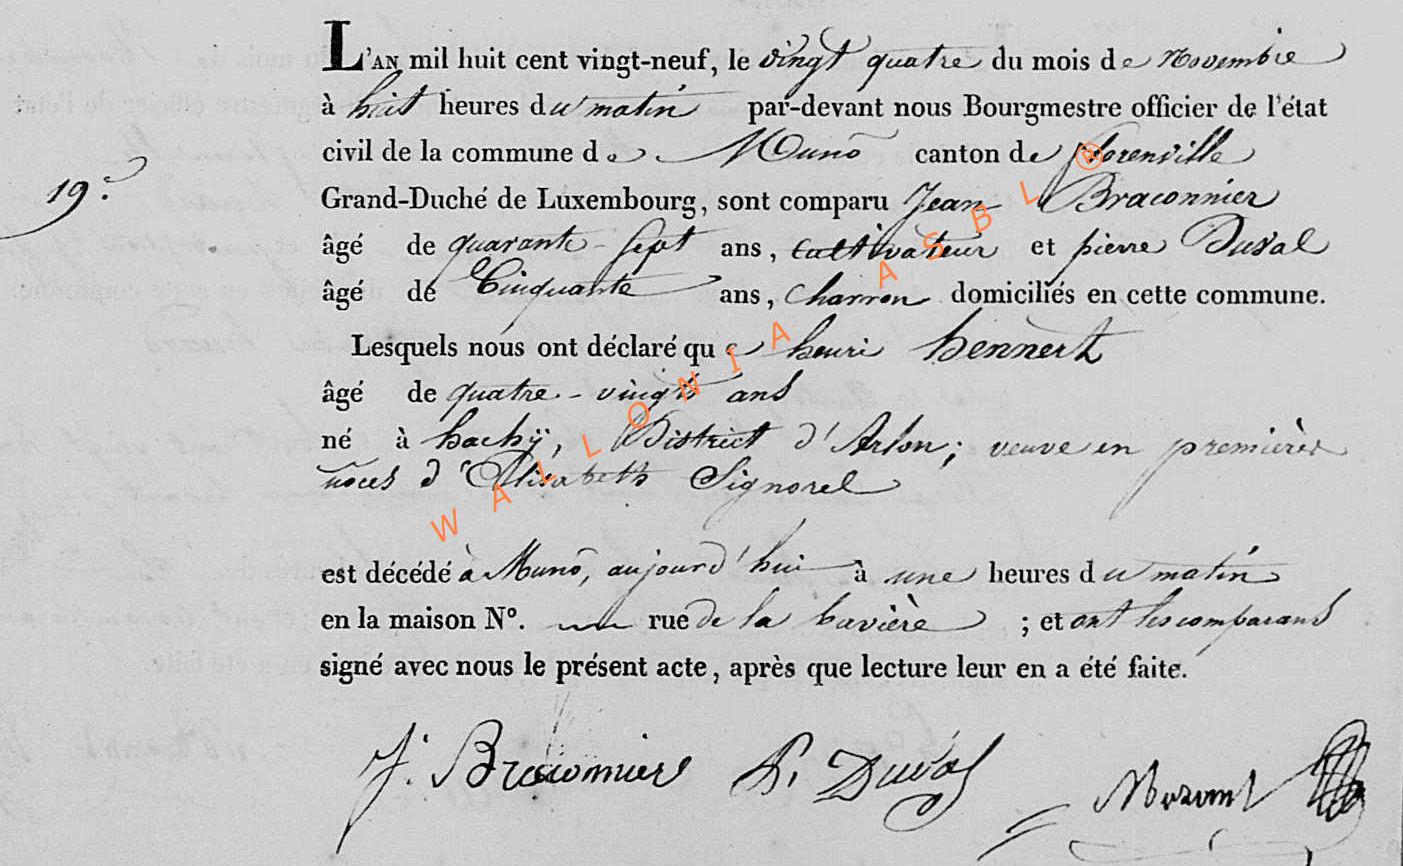 L'AN mil huit cent vingt-neuf, le vingt quatre du mois de Novembre
à huit heures du matin par-devant nous Bourgmestre officier de l'état
civil de la commune de Muno canton de florenville
19.e
Grand-Duché de Luxembourg, sont comparu Jean Braconnier
âgé de quarante-sept ans, cultivateur et pierre Duval
âgé de Cinquante ans, charron domiciliés en cette commune.
Lesquels nous ont déclaré que henri hennert
âgé de quatre-vingts ans
né à hachÿ, District d'Arlon; veuve en premières
noces d'Elisabeth Signorel
est décédé à Muno, aujourd'hui à une heures du matin
en la maison N°. rue de la bavière ; et ont les comparans
signé avec nous le présent acte, après que lecture leur en a été faite.
J. Braconnier P. Duval
WALLONIA ASBL ®